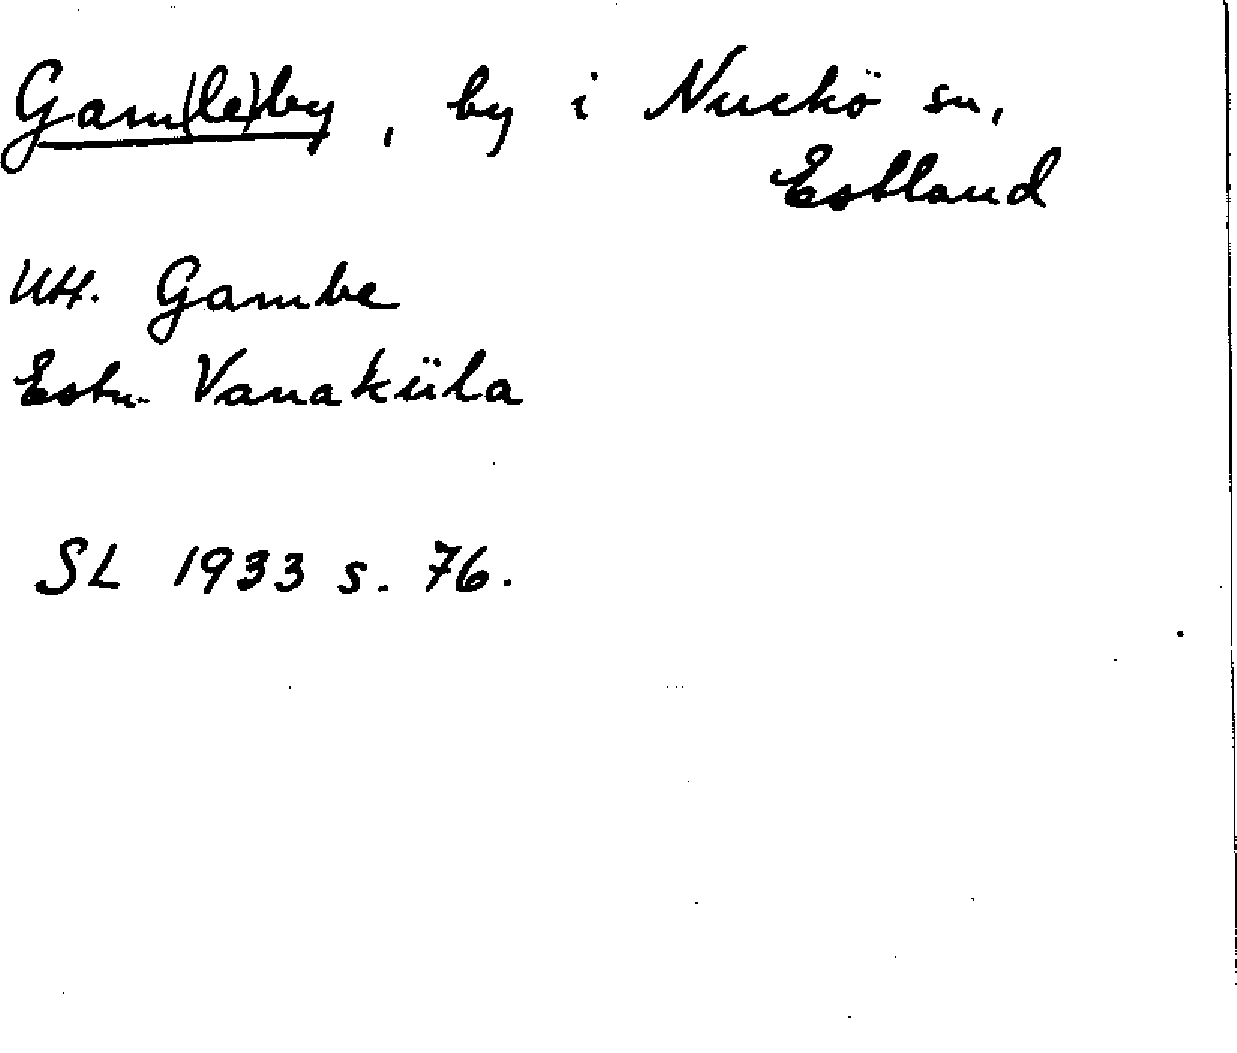 Gam(le)by, by i Nuckö sn,
Estland
Utt. Gambe
Estn. Vanaküla
SL 1933 s. 76.